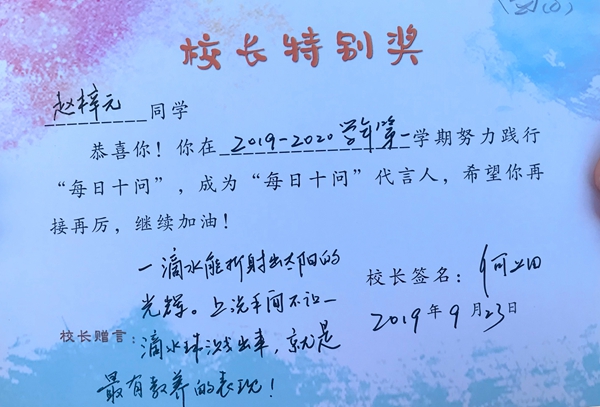 校长特别奖
赵梓元同学
恭喜你！你在2019-2020学年第一学期努力践行
“每日十问”，成为“每日十问”代言人，希望你再
接再厉，继续加油！
一滴水能折射出太阳的
光辉。上洗手间不让一
滴水珠溅出来，就是
最有教养的表现！
校长赠言：
校长签名：何
2019年9月23日